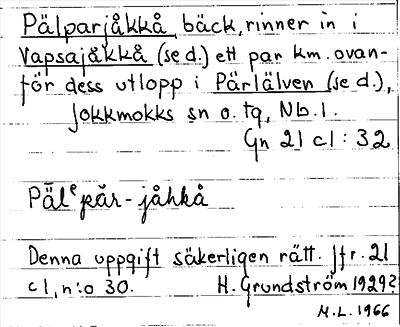 Pälparjåkkå, bäck, rinner in i
Vapsajåkkå (se d.) ett par km. ovan-
för dess utlopp i Pärlälven (se d.),
Jokkmokks sn o. tg, Nb. l.
Gn 21 c1 : 32
Pälᵉpăr-jåhkå
Denna uppgift säkerligen rätt. Jfr. 21
c1, n:o 30. H. Grundström 1929?
M.L. 1966